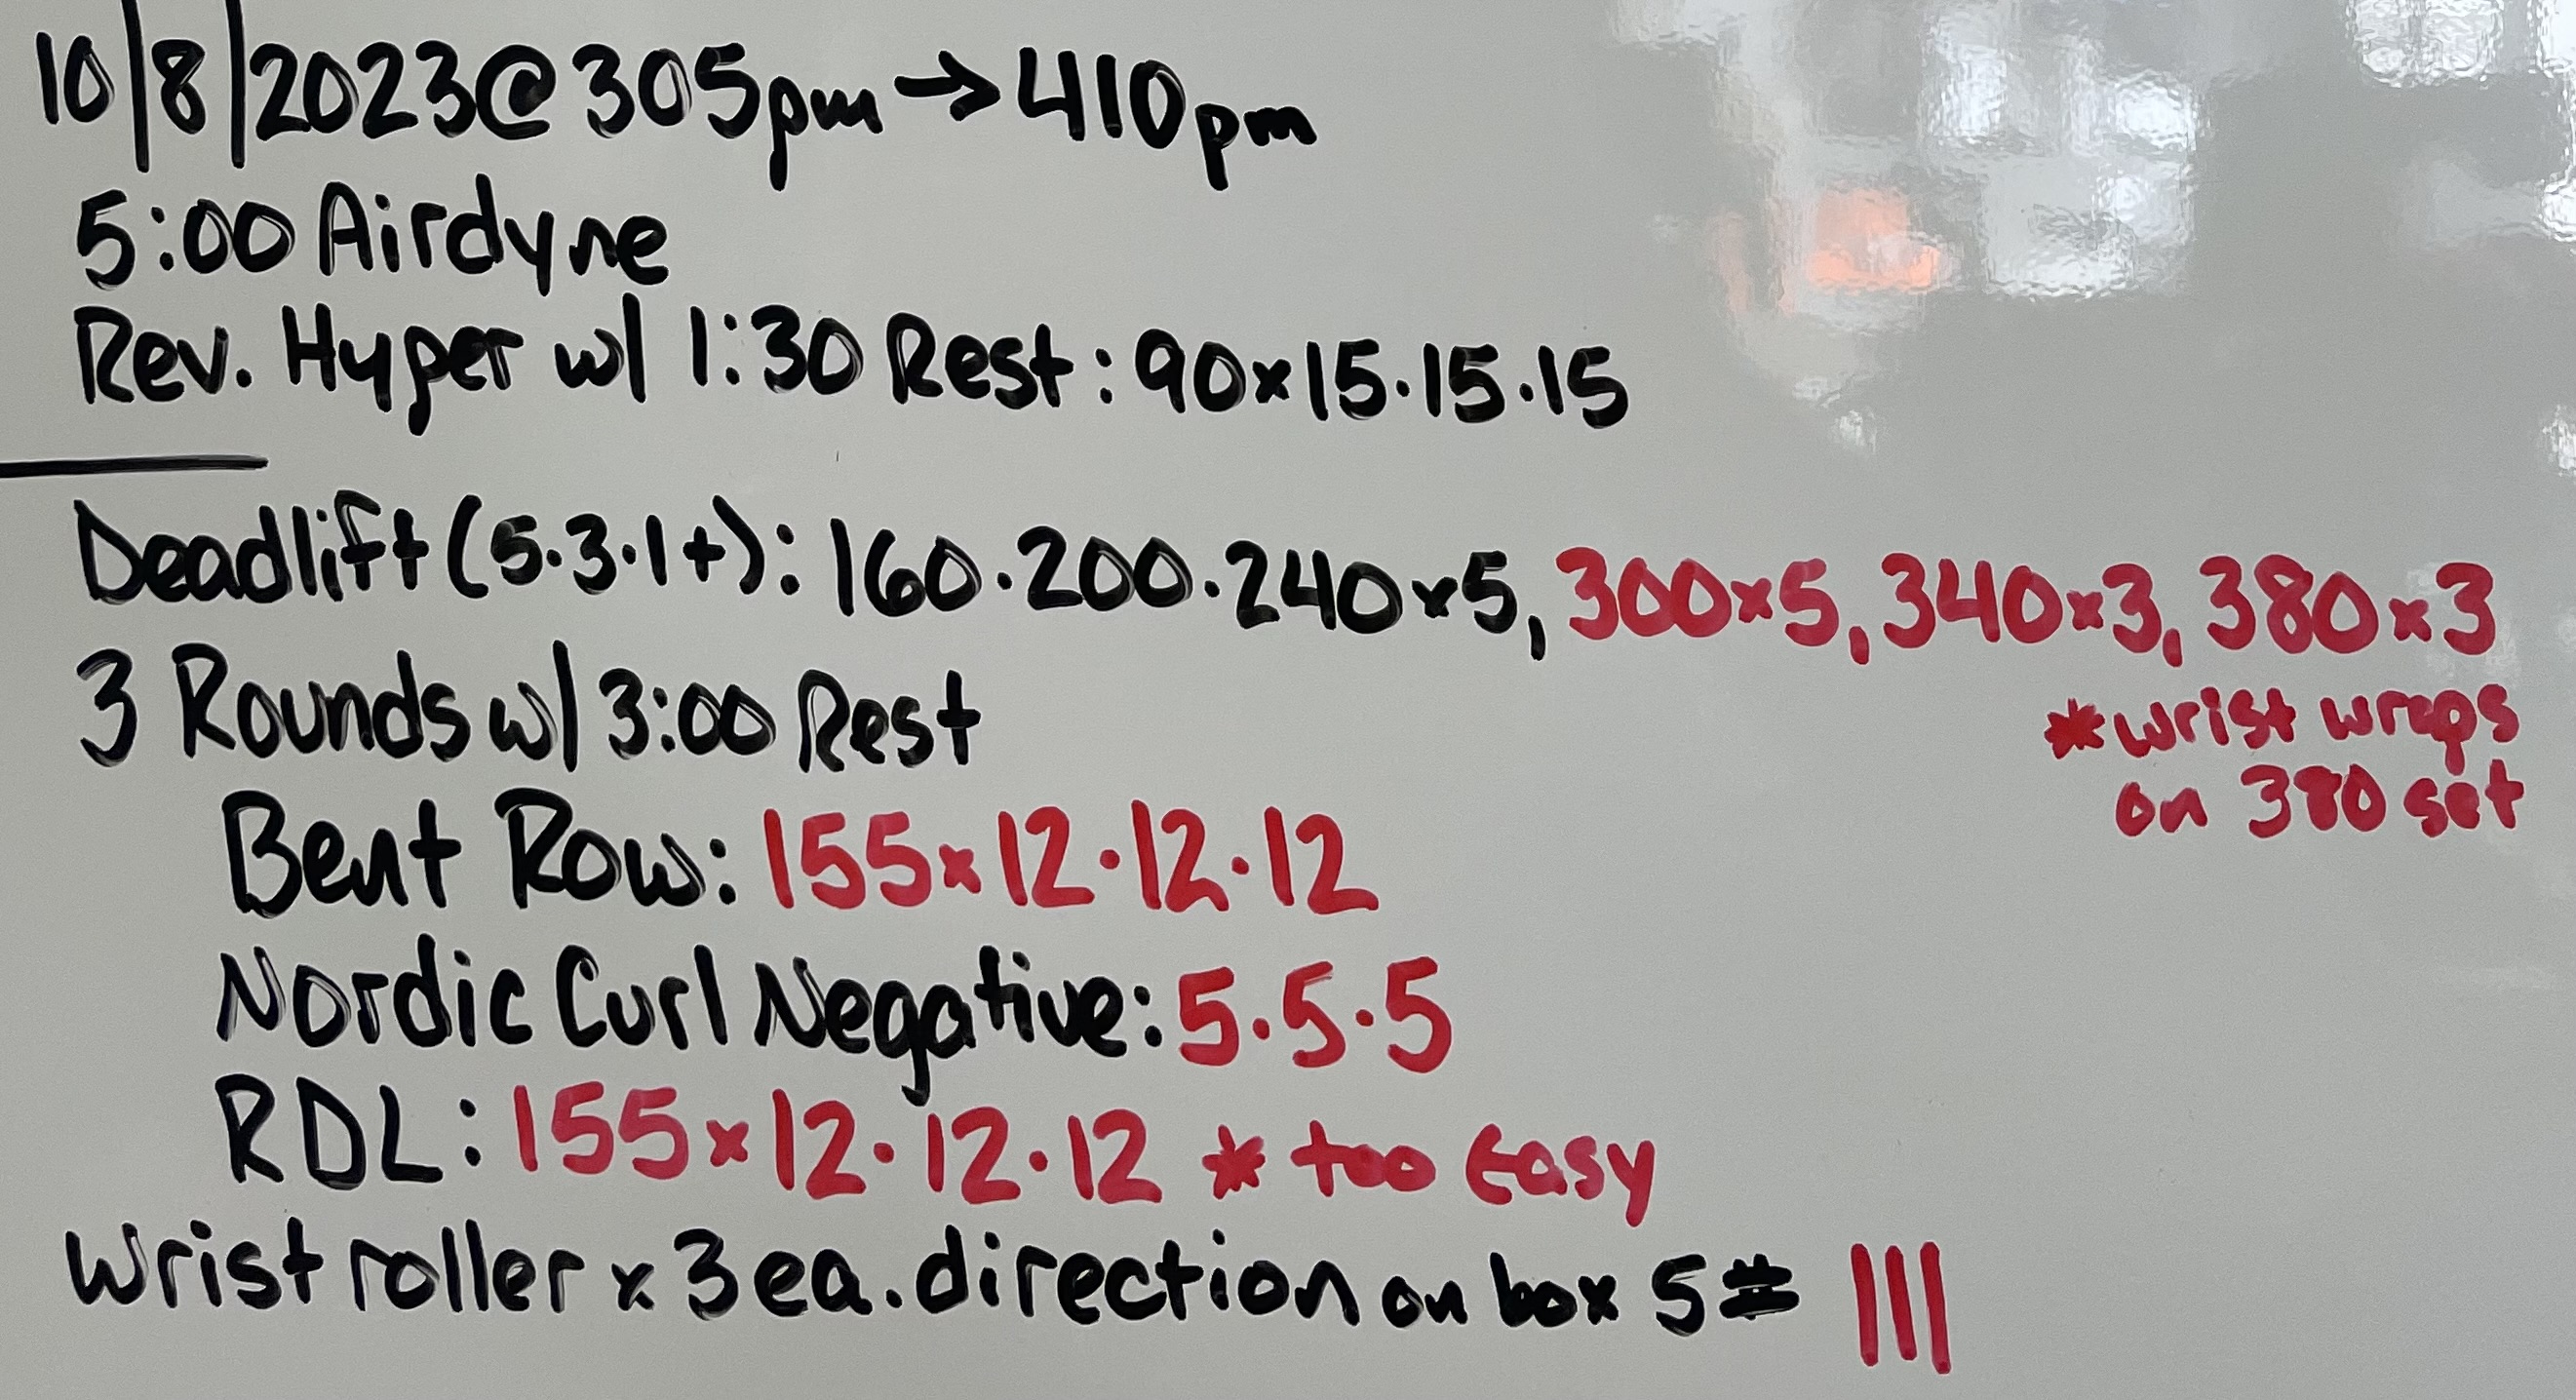 10/8/2023@305pm→410pm
5:00 Airdyne
Rev. Hyper w/ 1:30 Rest: 90x15·15·15
Deadlift (5·3·1+): 160·200·240x5, 300x5, 340x3, 380x3
*wrist wraps
on 380 set
3 Rounds w/ 3:00 Rest
Bent Row: 155x12·12·12
Nordic Curl Negative: 5·5·5
RDL: 155x12·12·12 * too easy
Wrist roller x 3 ea. direction on box 5# |||